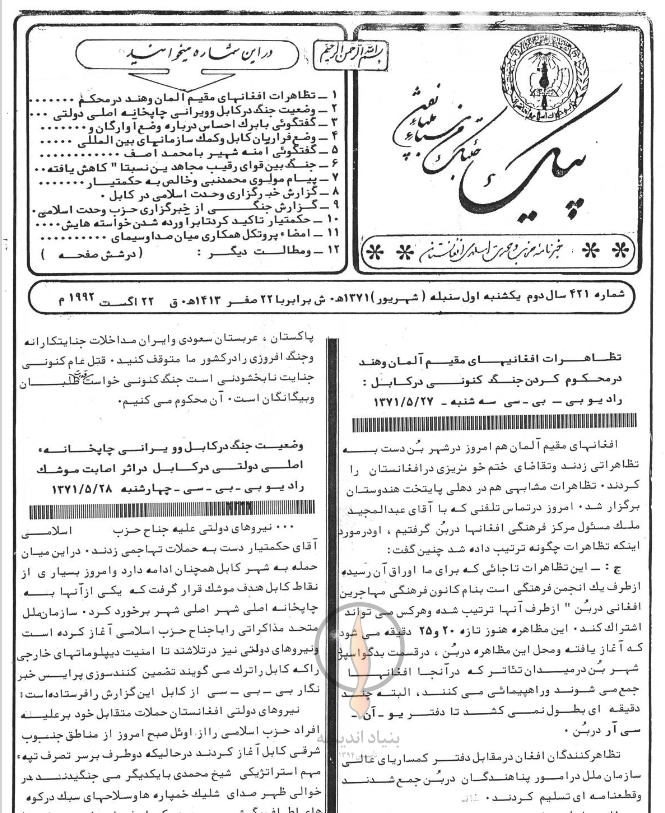 بسم الله الرحمن الرحیم
در این شماره میخوانید
۱ ـ تظاهرات افغانهای مقیم آلمان وهند درمحکم ........
۲ ـ وضعیت جنگ درکابل وویرانی چاپخانه اصلی دولتی ...
۳ ـ گفتگوئی بابرک احساس درباره وضع آوارگان و ........
۴ ـ وضع فراریان کابل وکمک سازمانهای بین المللی .....
۵ ـ گفتگوئی آمنه شهیر بامحمد آصف ............
۶ ـ جنگ بین قوای رقیب مجاهدین نسبتا" کاهش یافته ..
۷ ـ پیام مولوی محمدنبی وخالص به حکمتیار ........
۸ ـ گزارش خبرگزاری وحدت اسلامی در کابل .
۹ ـ گزارش جنگی از خبرگزاری حزب وحدت اسلامی .
۱۰ ـ حکمتیار تاکید کردتابرآورده شدن خواسته هایش ....
۱۱ ـ امضاء پروتکل همکاری میان صداوسیمای ..........
۱۲ ـ ومطالب دیگر : ( درشش صفحه )
پیک
خبرنامه حزب وحدت اسلامی افغانستان
شماره ۴۲۱ سال دوم یکشنبه اول سنبله ( شهریور ) ۱۳۷۱ه‍۰ ش برابربا ۲۲ صفر ۱۴۱۳ه‍۰ ق ۲۲ اگست ۱۹۹۲ م
تظاهرات افغانیهای مقیم آلمان وهند
درمحکوم کردن جنگ کنونی درکابل :
رادیو بی ـ بی ـ سی سه شنبه ـ ۱۳۷۱/۵/۲۷
افغانهای مقیم آلمان هم امروز درشهر بُن دست به
تظاهراتی زدند وتقاضای ختم خونریزی درافغانستان را
کردند۰ تظاهرات مشابهی هم در دهلی پایتخت هندوستان
برگزار شد۰ امروز درتماس تلفنی که با آقای عبدالمجید
ملک مسئول مرکز فرهنگی افغانها دربُن گرفتیم ، اودرمورد
اینکه تظاهرات چگونه ترتیب داده شد چنین گفت:
ج : ـ این تظاهرات تاجائی که برای ما اوراق آن رسیده
ازطرف یک انجمن فرهنگی است بنام کانون فرهنگی مهاجرین
افغانی دربُن " ازطرف آنها ترتیب شده وهرکس می تواند
اشتراک کند۰ این مظاهره هنوز تازه ۲۰ و ۲۵ دقیقه می شود
که آغاز یافته ومحل این مظاهره دربُن ، درقسمت
شهر بُن درمیدان تئاتر که درآنجا افغانها
جمع می شوند وراهپیمائی می کنند ، البته چند
دقیقه ای بطول نمی کشد تا دفتر یو ـ آن ـ
سی آر دربُن ۰
تظاهرکنندگان افغان درمقابل دفتر کمساریای عالی
سازمان ملل درامور پناهندگان دربُن جمع شدند
وقطعنامه ای تسلیم کردند۰
پاکستان ، عربستان سعودی وایران مداخلات جنایتکارانه
وجنگ افروزی رادرکشور ما متوقف کنید۰ قتل عام کنونی
جنایت نابخشودنی است جنگ کنونی خواست قدرت طلبان
وبیگانگان است۰ آن محکوم می کنیم۰
وضعیت جنگ درکابل وویرانی چاپخانه
اصلی دولتی درکابل دراثر اصابت موشک
رادیو بی ـ بی ـ سی ـ چهارشنبه ۱۳۷۱/۵/۲۸
... نیروهای دولتی علیه جناح حزب اسلامی
آقای حکمتیار دست به حملات تهاجمی زدند۰ دراین میان
حمله به شهر کابل همچنان ادامه دارد وامروز بسیاری از
نقاط کابل هدف موشک قرار گرفت که یکی ازآنها به
چاپخانه اصلی شهر اصلی شهر برخورد کرد۰ سازمان ملل
متحد مذاکراتی راباجناح حزب اسلامی آغاز کرده است
ونیروهای دولتی نیز درتلاشند تا امنیت دیپلوماتهای خارجی
راکه کابل راترک می گویند تضمین کنندسوزی پرایس خبر
نگار بی ـ بی ـ سی از کابل این گزارش رافرستاده است:
نیروهای دولتی افغانستان حملات متقابل خود برعلیه
افراد حزب اسلامی رااز اوئل صبح امروز از مناطق جنوب
شرقی کابل آغاز کردند درحالیکه دوطرف برسر تصرف تپه
مهم استراتژیکی شیخ محمدی بایکدیگر می جنگیدند در
حوالی ظهر صدای شلیک خمپاره هاوسلاحهای سبک درکوه
بنیاد اندیشه